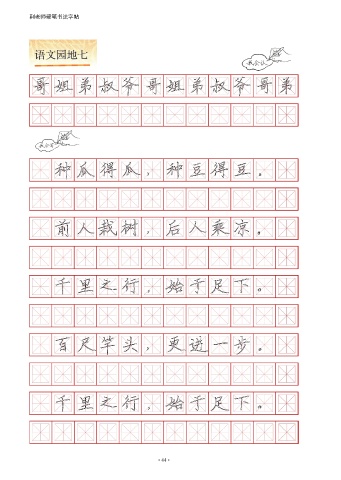 田老师硬笔书法字帖
语文园地七
我会认
哥姐弟叔爷哥姐弟叔爷哥弟
我会写
种瓜得瓜，种豆得豆。
前人栽树，后人乘凉。
千里之行，始于足下。
百尺竿头，更进一步。
千里之行，始于足下。
·44·